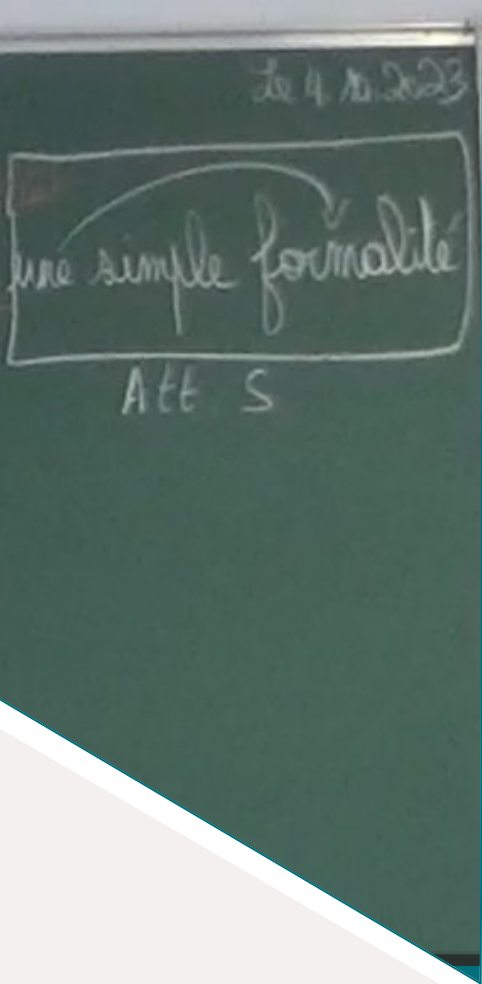 Le 4 10.2023
une simple formalité
Att S